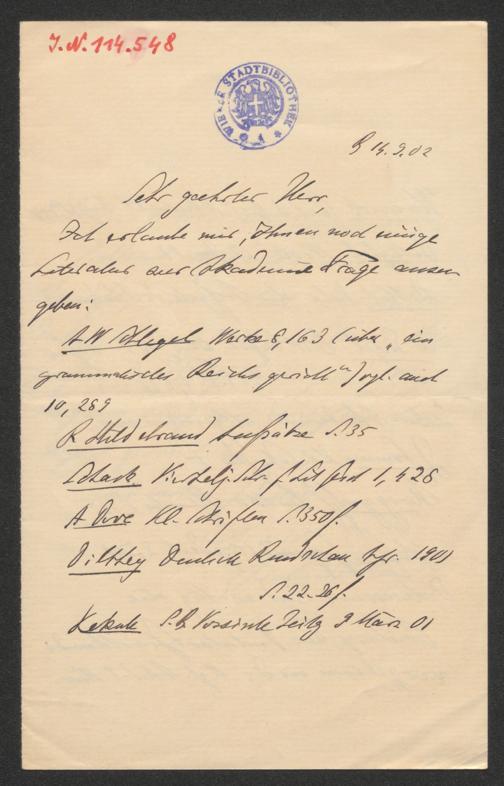 J.N. 114.548
WIENER STADTBIBLIOTHEK
B 14.9.02
Sehr geehrter Herr,
Ich erlaube mir, Ihnen noch einige
Literatur zur Akademie Frage anzu-
geben:
AW Schlegel Werke 8, 163 (über „ein
grammatisches Reichsgericht“) vgl. auch
10, 289
R Hildebrand Aufsätze S. 35
Vierteljschr. f Lit gesch 1, 426
A Dove Kl. Schriften S. 350f.
Dilthey Deutsche Rundschau Apr. 1901
S. 22-26f.
Kekule S.B. Vossische Zeitg 2 März 01